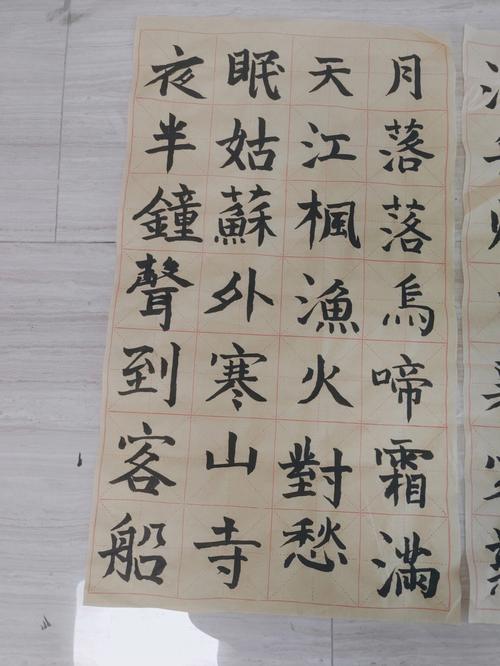 月落落烏啼霜滿
天江楓漁火對愁
眠姑蘇外寒山寺
夜半鐘聲到客船